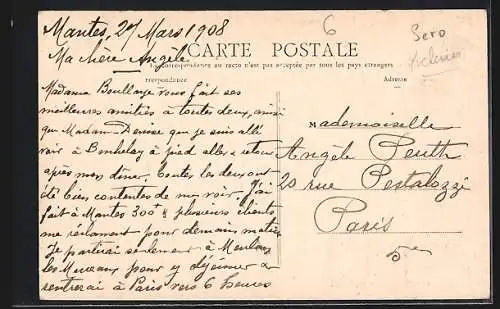 Mantes, 27 Mars 1908
6
Sero
Ma chère Angèle
CARTE POSTALE
La correspondance au recto n'est pas acceptée par tous les pays étrangers
rrespondance
Adresse
Madame Boullaye vous fait ses
meilleures amitiés à toutes deux, ainsi
que Madame Denise que je suis allé
voir à à pied aller & retour
après mon dîner. Toutes les deux ont
été bien contentes de me voir. J'ai
fait à Mantes 300 & plusieurs clients
me réclament pour demain matin
Je partirai seulement à Meulan
les Mureaux pour y déjeuner &
rentrerai à Paris vers 6 heures
Mademoiselle
Angèle
20 rue Pestalozzi
Paris
5e